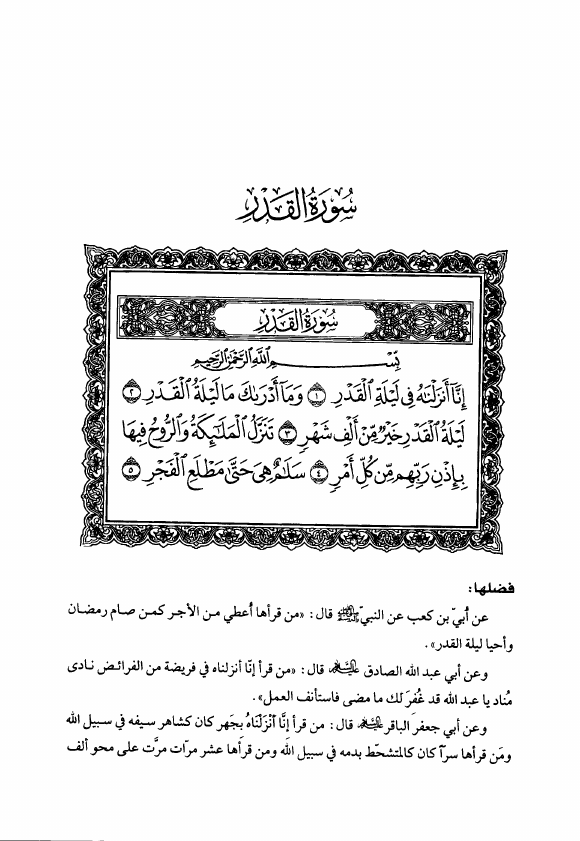 سُورَةُ القَدْرِ
سُورَةُ القَدْرِ
بِسْمِ اللَّهِ الرَّحْمَٰنِ الرَّحِيمِ
إِنَّا أَنزَلْنَاهُ فِي لَيْلَةِ الْقَدْرِ ١ وَمَا أَدْرَاكَ مَا لَيْلَةُ الْقَدْرِ ٢
لَيْلَةُ الْقَدْرِ خَيْرٌ مِّنْ أَلْفِ شَهْرٍ ٣ تَنَزَّلُ الْمَلَائِكَةُ وَالرُّوحُ فِيهَا
بِإِذْنِ رَبِّهِم مِّن كُلِّ أَمْرٍ ٤ سَلَامٌ هِيَ حَتَّىٰ مَطْلَعِ الْفَجْرِ ٥
فضلها:
عن أُبيّ بن كعب عن النبيّ ﷺ قال: «من قرأها أُعطي من الأجر كمن صام رمضان
وأحيا ليلة القدر».
وعن أبي عبد الله الصادق عليه السلام قال: «من قرأ إنّا أنزلناه في فريضة من الفرائض نادى
مُناد يا عبد الله قد غُفرَ لك ما مضى فاستأنف العمل».
وعن أبي جعفر الباقر عليه السلام قال: من قرأ إِنَّا أَنْزَلْنَاهُ بجَهر كان كشاهر سيفه في سبيل الله
ومَن قرأها سرّاً كان كالمتشحّط بدمه في سبيل الله ومن قرأها عشر مرّات مرَّت على محو ألف